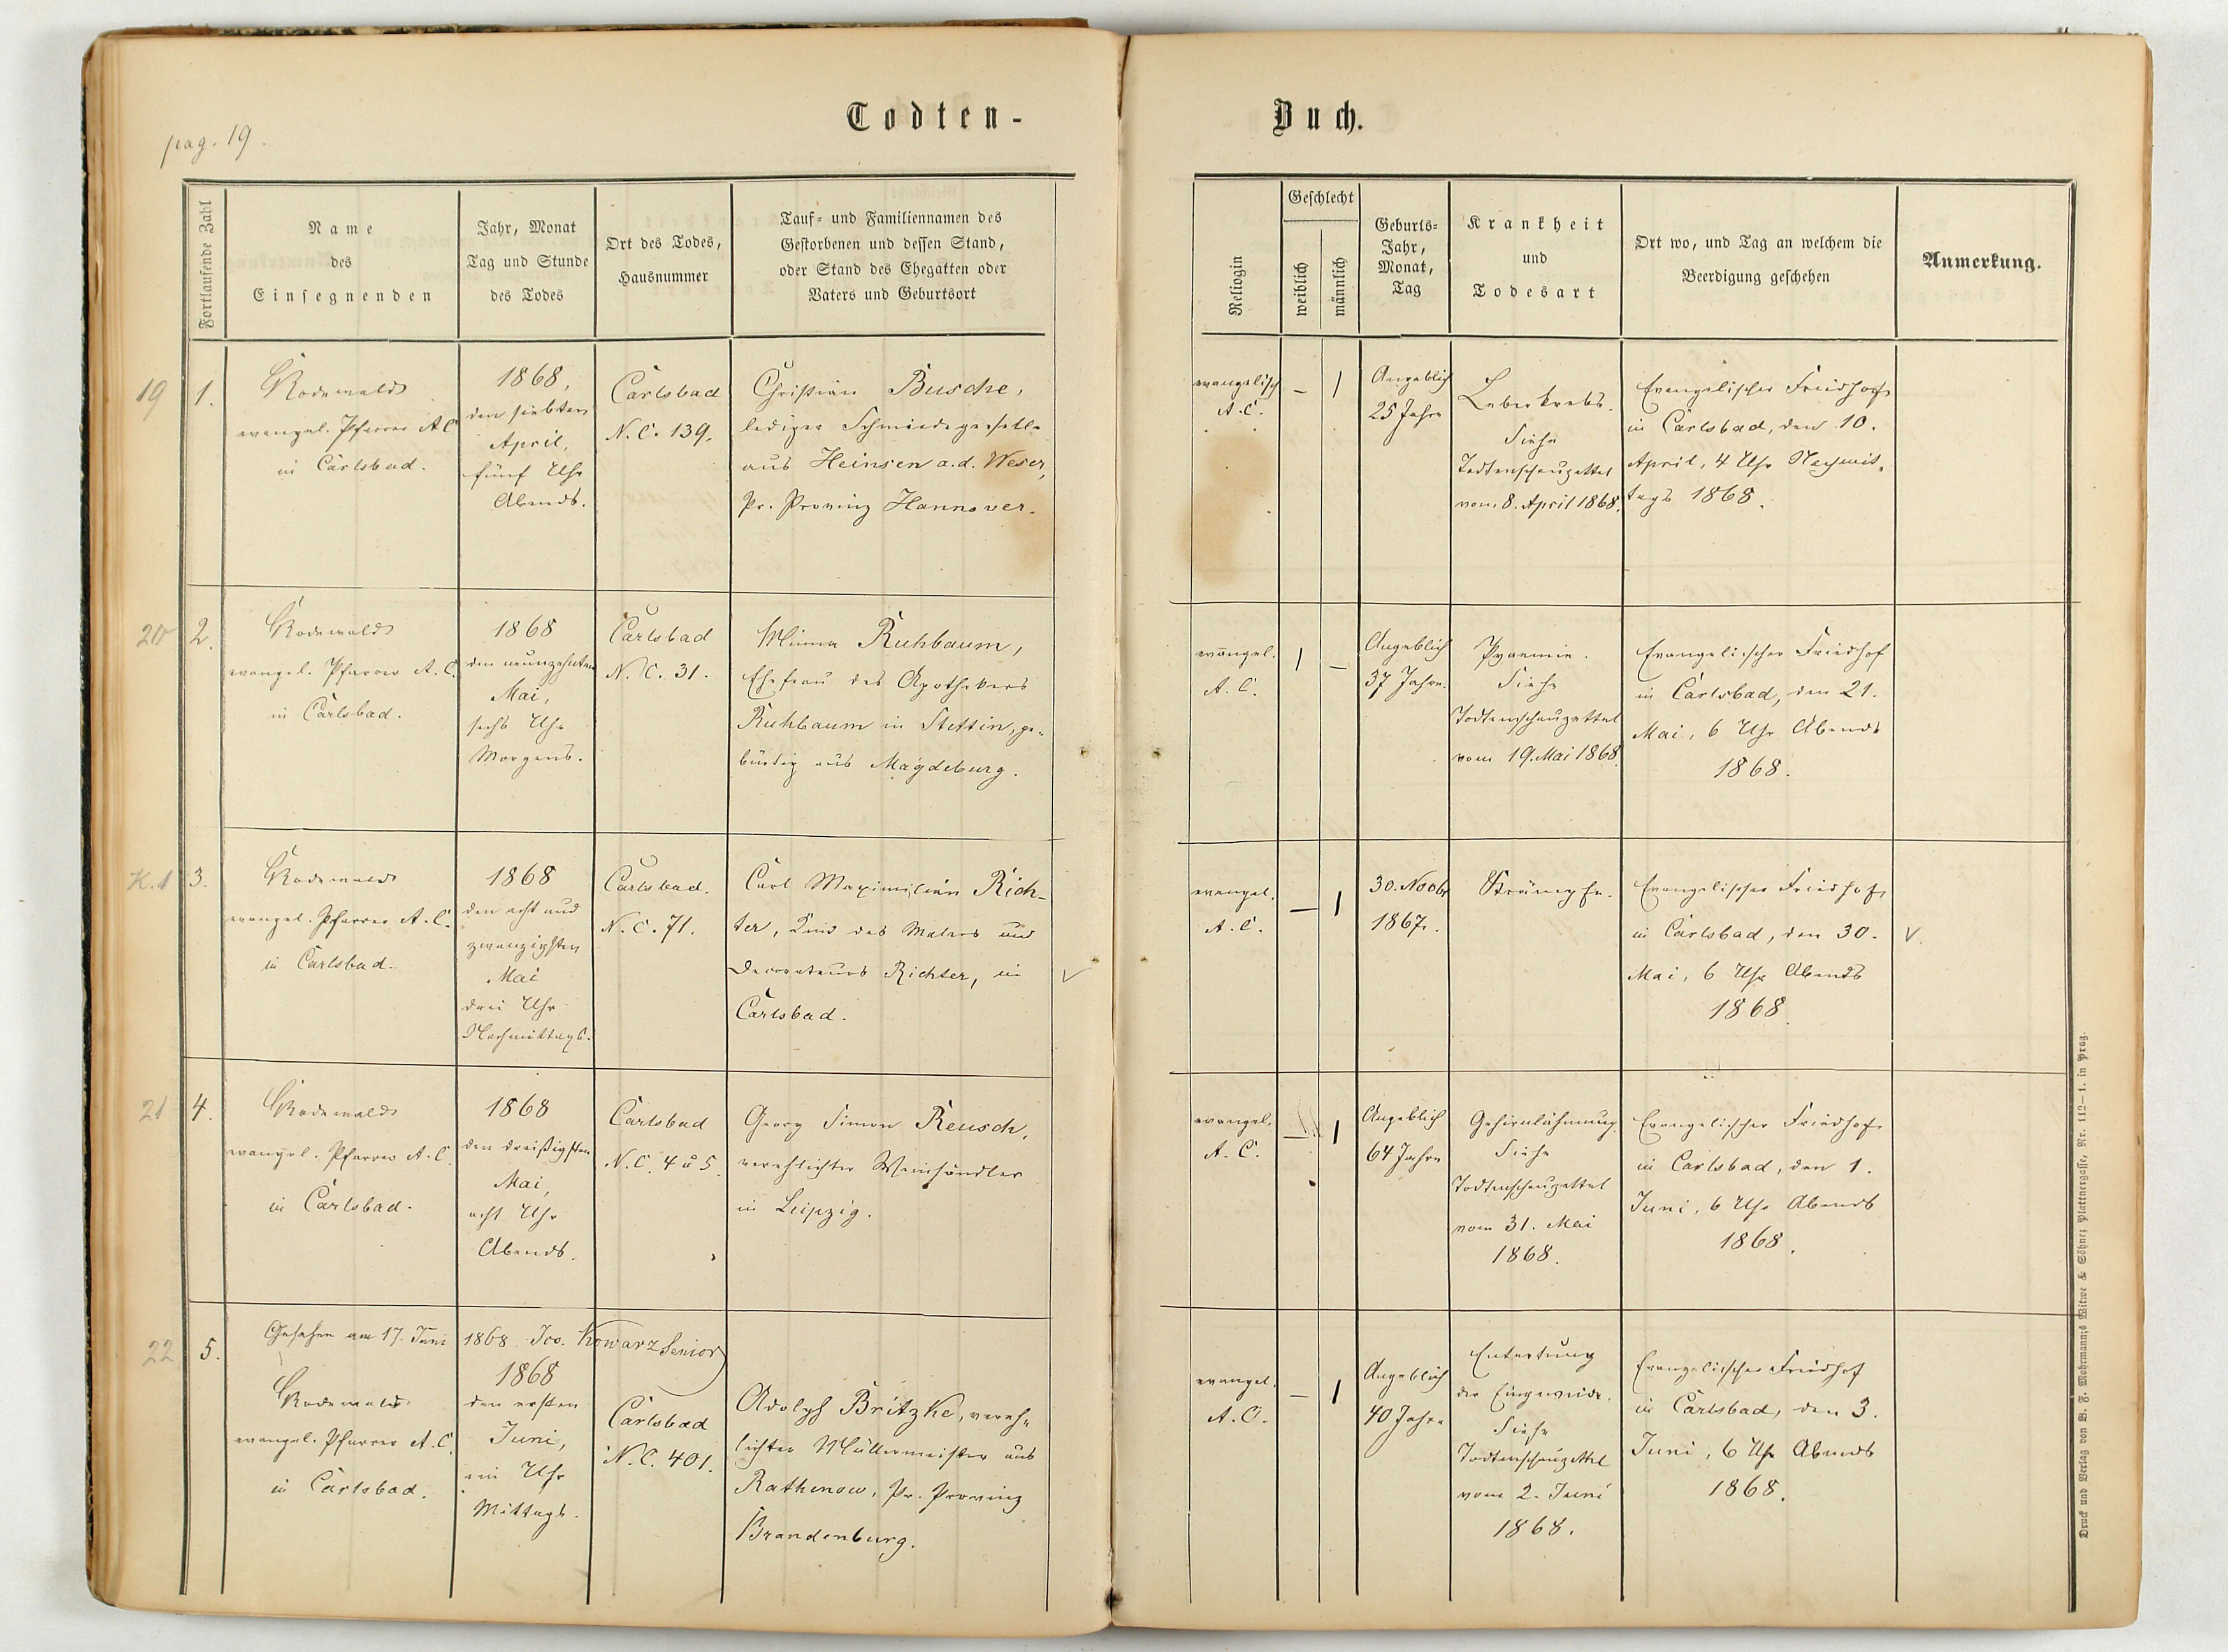 pag. 19.
Todten-
Buch.
Fortlaufende Zahl
Name
des
Einsegnenden
Jahr, Monat
Tag und Stunde
des Todes
Ort des Todes,
Hausnummer
Tauf- und Familiennamen des
Gestorbenen und dessen Stand,
oder Stand des Ehegatten oder
Vaters und Geburtsort
Religion
Geschlecht
weiblich
männlich
Geburts-
Jahr,
Monat,
Tag
Krankheit
und
Todesart
Ort wo, und Tag an welchem die
Beerdigung geschehen
Anmerkung.
19
1.
Rodewald
evangel. Pfarrer A C
in Carlsbad.
1868,
den siebten
April,
fünf Uhr
Abends.
Carlsbad
N. C. 139.
Christian Busche,
lediger Schmiedegeselle
aus Heinsen a. d. Weser,
Pr. Provinz Hannover.
evangelisch
A. C.
–
1
Angeblich
25 Jahre
Leberkrebs.
Siehe
Todtenschauzettel
vom 8. April 1868.
Evangelischer Friedhof
in Carlsbad, den 10.
April, 4 Uhr Nachmit-
tags 1868.
20
2.
Rodewald
evangel. Pfarrer A. C.
in Carlsbad.
1868
den neunzehnten
Mai,
sechs Uhr
Morgens.
Carlsbad
N. C. 31.
Minna Ruhbaum,
Ehefrau des Apothekers
Ruhbaum in Stettin, ge-
bürtig aus Magdeburg.
evangel.
A. C.
1
–
Angeblich
37 Jahre.
Pyaemie.
Siehe
Todtenschauzettel
vom 19. Mai 1868.
Evangelischer Friedhof
in Carlsbad, den 21.
Mai, 6 Uhr Abends
1868.
K. 1
3.
Rodewald
evangel. Pfarrer A. C.
in Carlsbad.
1868
den acht und
zwanzigsten
Mai
drei Uhr
Nachmittags.
Carlsbad.
N. C. 71.
Carl Maximilian Rich-
ter, Kind des Malers und
Decorateurs Richter, in
Carlsbad.
evangel.
A. C.
–
1
30. Novbr
1867.
Krämpfe.
Evangelischer Friedhof
in Carlsbad, den 30.
Mai, 6 Uhr Abends
1868.
21
4.
Rodewald
evangel. Pfarrer A. C.
in Carlsbad.
1868
den dreißigsten
Mai,
acht Uhr
Abends.
Carlsbad
N. C. 4 u 5.
Georg Simon Reusch,
verehlichter Weinhändler
in Leipzig.
evangel.
A. C.
–
1
Angeblich
64 Jahre
Gehirnlähmung.
Siehe
Todtenschauzettel
vom 31. Mai
1868.
Evangelischer Friedhof
in Carlsbad, den 1.
Juni, 6 Uhr Abends
1868.
22
5.
Gesehen am 17. Juni 1868 Kowarz Senior
Rodewald
evangel. Pfarrer A. C.
in Carlsbad.
1868
den ersten
Juni,
ein Uhr
Mittags.
Carlsbad
N. C. 401.
Adolph Britzke, vereh-
lichter Müllermeister aus
Rathenow, Pr. Provinz
Brandenburg.
evangel.
A. C.
–
1
Angeblich
40 Jahre
Entartung
der Eingeweide.
Siehe
Todtenschauzettel
vom 2. Juni
1868.
Evangelischer Friedhof
in Carlsbad, den 3.
Juni, 6 Uhr Abends
1868.
Druck und Verlag von B. F. Mohrmann;s Witwe & Söhnez Plattnergasse, Nr. 112–1. in Prag.